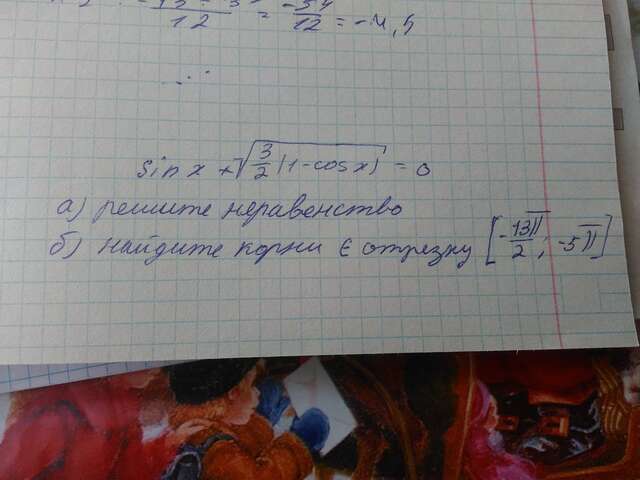 = -54/12 = -4,5
sin x + √(3/2 (1-cos x)) = 0
а) решите неравенство
б) найдите корни ∈ отрезку [-13π/2; -5π]